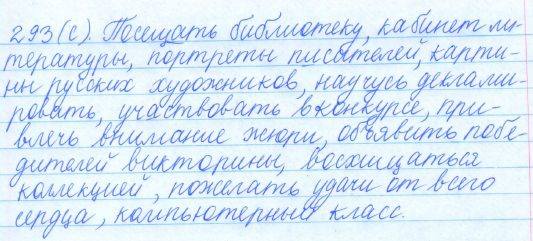 293(с). Посещать библиотеку, кабинет ли-
тературы, портреты писателей, карти-
ны русских художников, научусь деклами-
ровать, участвовать в конкурсе, при-
влечь внимание жюри, объявить побе-
дителей викторины, восхищаться
коллекцией, пожелать удачи от всего
сердца, компьютерный класс.